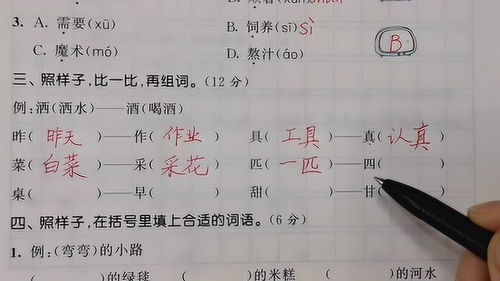 3. A. 需要(xū) B. 饲养(sī) sì B
C. 魔术(mó) D. 熬汁(áo)
三、照样子,比一比,再组词。(12分)
例:洒(洒水)——酒(喝酒)
昨( 昨天 )——作( 作业 ) 具( 工具 )——真( 认真 )
菜( 白菜 )——采( 采花 ) 匹( 一匹 )——四( )
桌( )——早( ) 甜( )——甘( )
四、照样子,在括号里填上合适的词语。(6分)
1. 例:(弯弯)的小路
( )的绿毯 ( )的米糕 ( )的河水